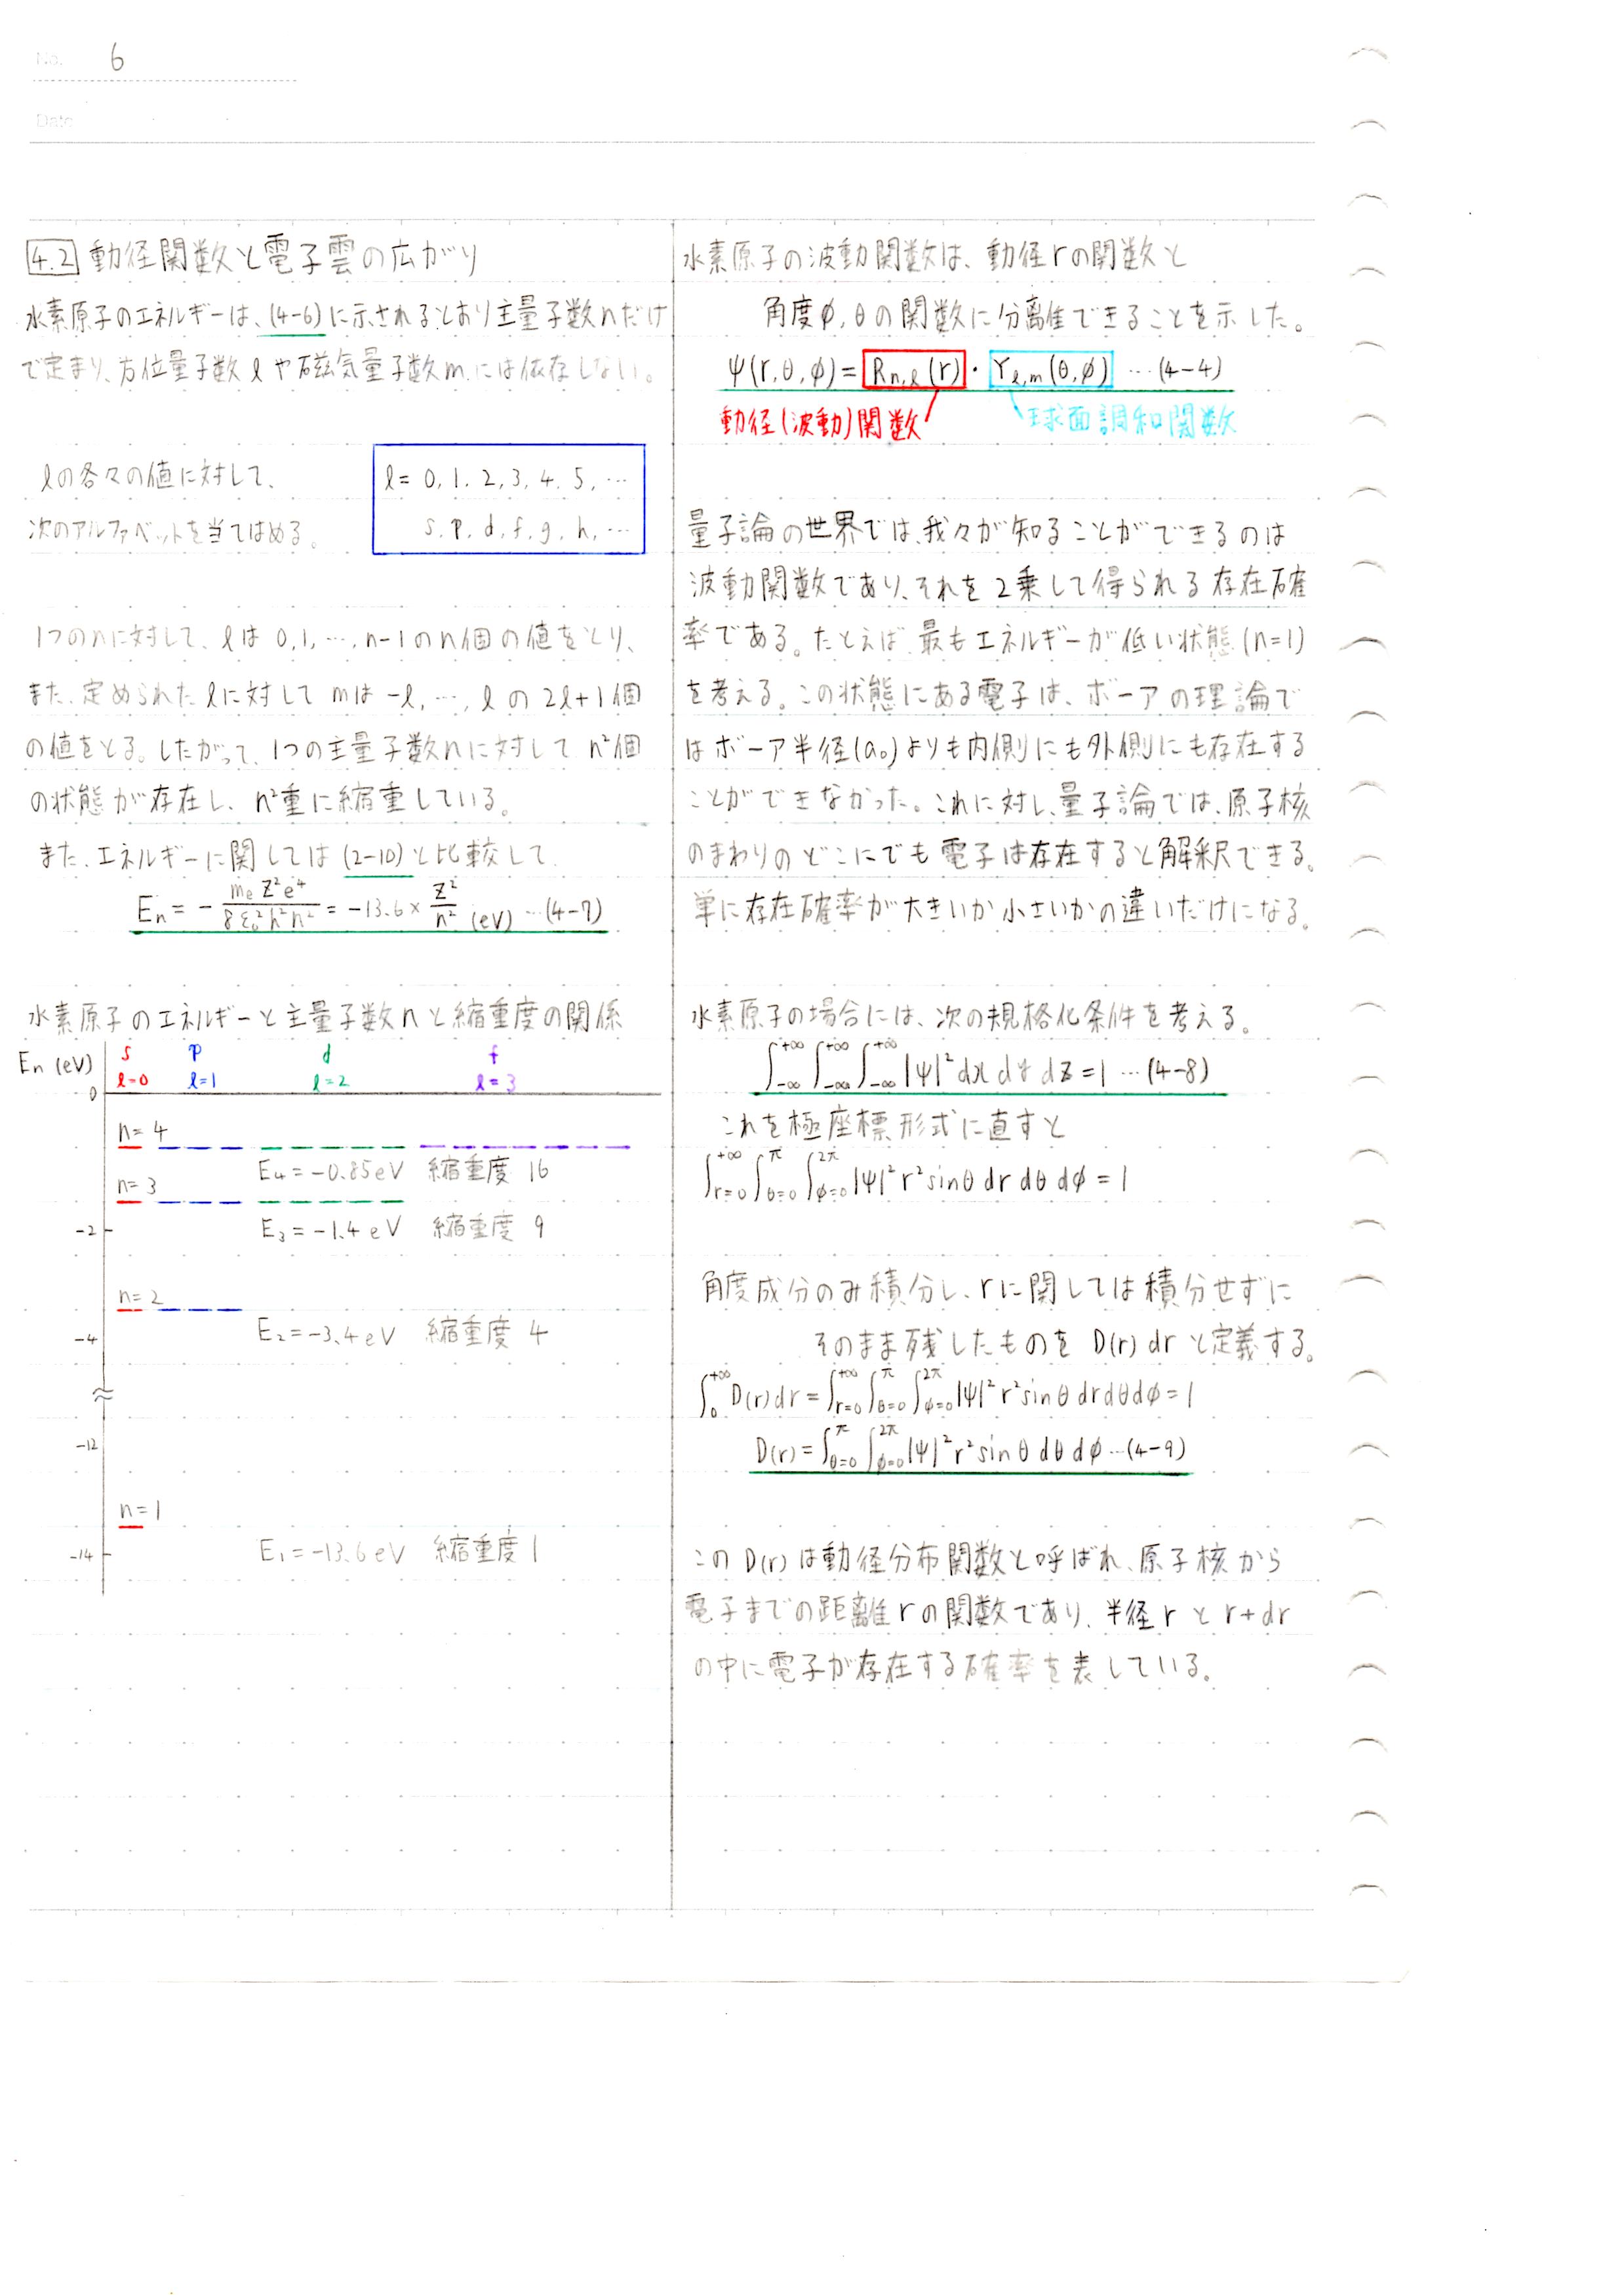 No. 6
Date
4.2 動径関数と電子雲の広がり
水素原子のエネルギーは、(4-6)に示されるとおり主量子数nだけ
で定まり、方位量子数ℓや磁気量子数mには依存しない。
ℓの各々の値に対して、
次のアルファベットを当てはめる。
ℓ= 0, 1, 2, 3, 4, 5, …
s, p, d, f, g, h, …
1つのnに対して、ℓは 0, 1, …, n-1のn個の値をとり、
また、定められたℓに対して mは -ℓ, …, ℓ の 2ℓ+1個
の値をとる。したがって、1つの主量子数nに対して n²個
の状態が存在し、n²重に縮重している。
また、エネルギーに関しては(2-10)と比較して、
En = - meZ²e⁴/8ε₀²h²n² = -13.6 × Z²/n² (eV) …(4-7)
水素原子のエネルギーと主量子数nと縮重度の関係
En (eV) s p d f
ℓ=0 ℓ=1 ℓ=2 ℓ=3
0
n=4
E₄=-0.85eV 縮重度 16
n=3
-2 E₃=-1.4eV 縮重度 9
n=2
-4 E₂=-3.4eV 縮重度 4
-12
n=1
-14 E₁=-13.6eV 縮重度 1
水素原子の波動関数は、動径rの関数と
角度φ, θの関数に分離できることを示した。
ψ(r, θ, φ) = Rn,ℓ(r) · Yℓ,m(θ, φ) …(4-4)
動径(波動)関数 球面調和関数
量子論の世界では、我々が知ることができるのは
波動関数であり、それを2乗して得られる存在確
率である。たとえば、最もエネルギーが低い状態(n=1)
を考える。この状態にある電子は、ボーアの理論で
はボーア半径(a₀)よりも内側にも外側にも存在する
ことができなかった。これに対し、量子論では、原子核
のまわりのどこにでも電子は存在すると解釈できる。
単に存在確率が大きいか小さいかの違いだけになる。
水素原子の場合には、次の規格化条件を考える。
∫_{-∞}^{+∞}∫_{-∞}^{+∞}∫_{-∞}^{+∞}|ψ|² dx dy dz = 1 …(4-8)
これを極座標形式に直すと
∫_{r=0}^{+∞}∫_{θ=0}^{π}∫_{φ=0}^{2π}|ψ|² r² sinθ dr dθ dφ = 1
角度成分のみ積分し、rに関しては積分せずに
そのまま残したものを D(r) dr と定義する。
∫_{0}^{+∞}D(r)dr = ∫_{r=0}^{+∞}∫_{θ=0}^{π}∫_{φ=0}^{2π}|ψ|² r² sinθ dr dθ dφ = 1
D(r) = ∫_{θ=0}^{π}∫_{φ=0}^{2π}|ψ|² r² sinθ dθ dφ …(4-9)
このD(r)は動径分布関数と呼ばれ、原子核から
電子までの距離rの関数であり、半径rとr+dr
の中に電子が存在する確率を表している。